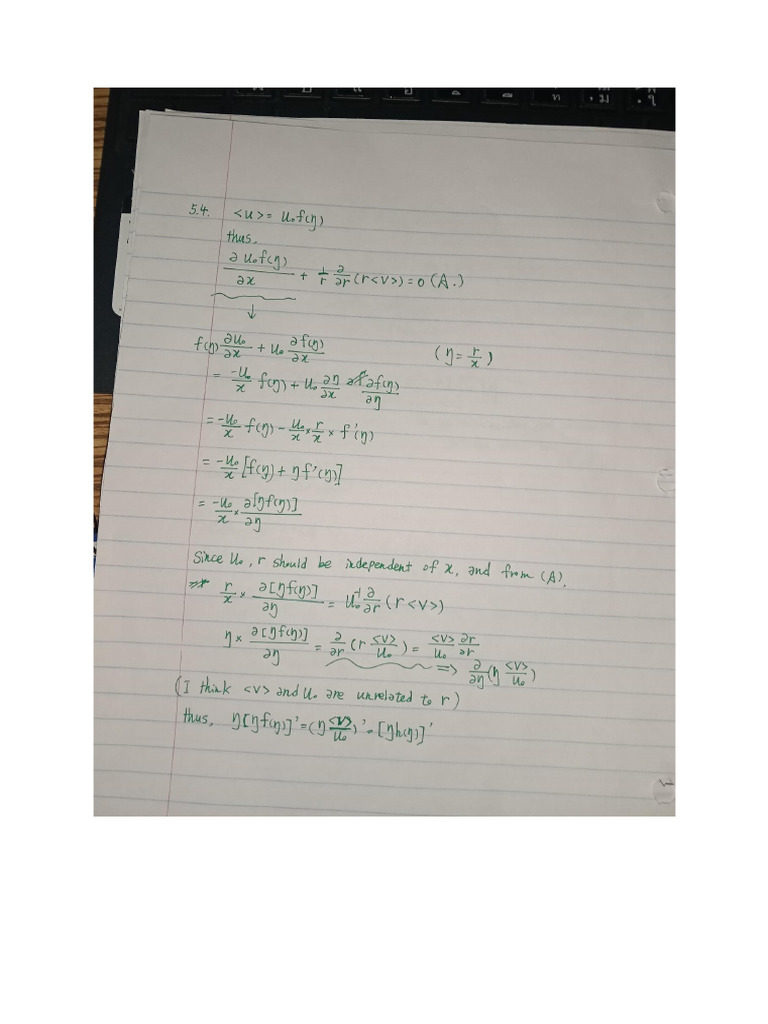 5.4. <u> = u₀f(η)
thus,
∂ u₀f(η) / ∂x + 1/r ∂/∂r (r<v>) = 0 (A.)
↓
f(η) ∂u₀/∂x + u₀ ∂f(η)/∂x (η = r/x)
= -u₀/x f(η) + u₀ ∂η/∂x ∂f(η)/∂η
= -u₀/x f(η) - u₀/x × r/x × f'(η)
= -u₀/x [f(η) + η f'(η)]
= -u₀/x × ∂[ηf(η)]/∂η
Since u₀, r should be independent of x, and from (A),
⇒ r/x × ∂[ηf(η)]/∂η = u₀⁻¹ ∂/∂r (r<v>)
η × ∂[ηf(η)]/∂η = ∂/∂r (r <v>/u₀) = <v>/u₀ ∂r/∂r
⇒ ∂/∂η (η <v>/u₀)
(I think <v> and u₀ are unrelated to r)
thus, η[ηf(η)]' = (η <v>/u₀)' = [ηh(η)]'